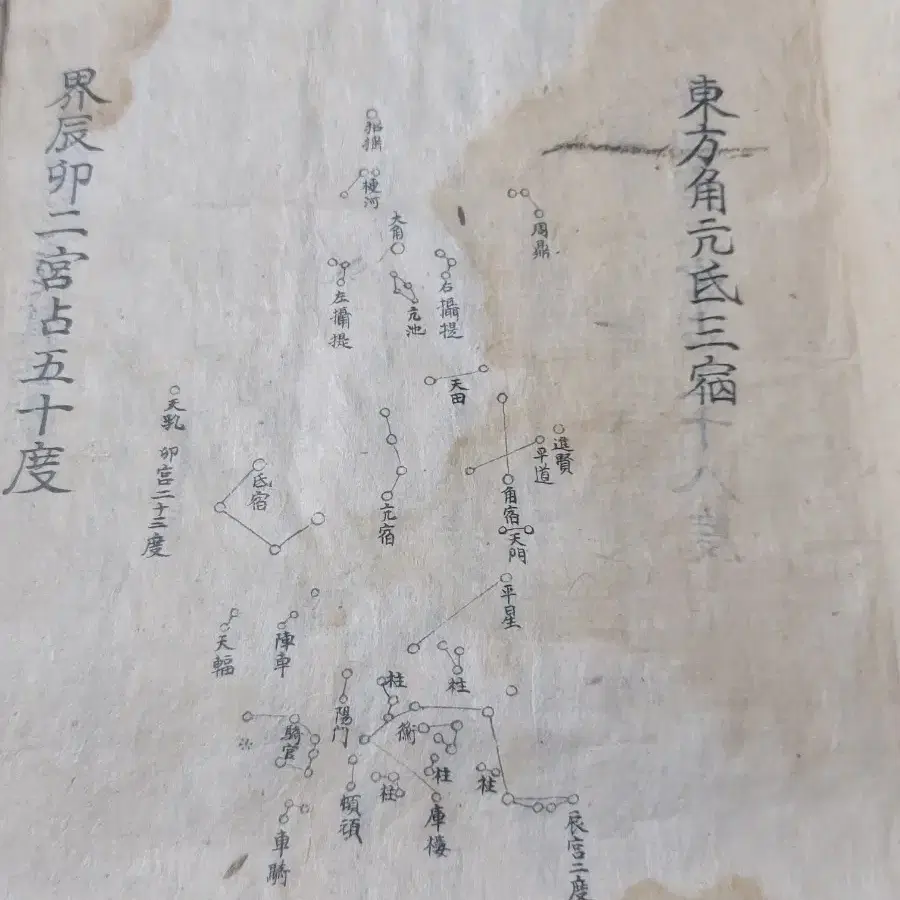 東方角亢氐三宿
周鼎
進賢
平道
天田
角宿
天門
平星
右攝提
亢池
大角
招搖
梗河
左攝提
亢宿
氐宿
天乳
卯宮二十三度
天輻
陣車
騎官
車騎
陽门
頓頑
柱
柱
衡
柱
柱
柱
庫樓
辰宮二度
界辰卯二宮占五十度